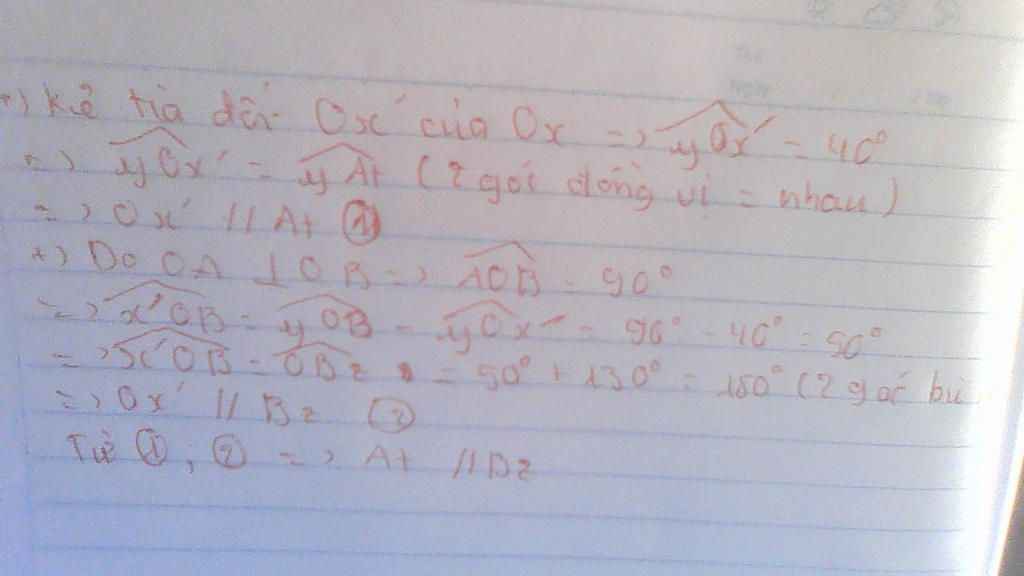 +) Kẻ tia đối Ox' của Ox => yOx' = 40°
=> yOx' = yAt (2 góc đồng vị = nhau)
=> Ox' // At ①
+) Do OA ⊥ OB => AOB = 90°
=> x'OB = yOB - yOx' = 90° - 40° = 50°
=> x'OB = OBz = 50° + 130° = 180° (2 góc bù
=> Ox' // Bz ②
Từ ①; ② => At // Bz